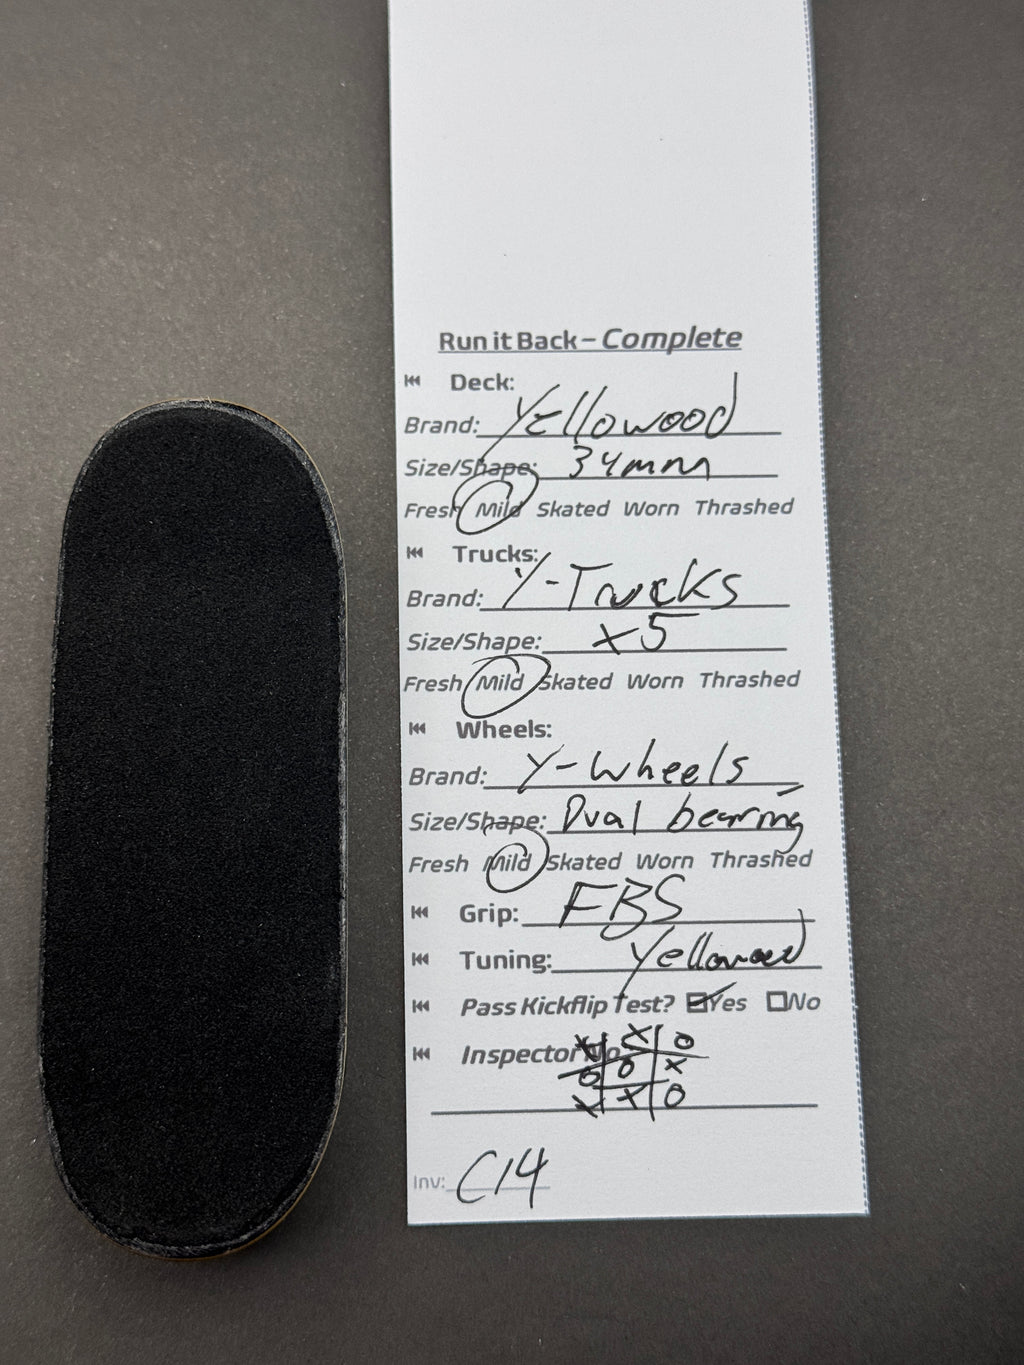 Run it Back – Complete
Deck:
Brand: Yellowood
Size/Shape: 34mm
Fresh Mild Skated Worn Thrashed
Trucks:
Brand: Y-Trucks
Size/Shape: x5
Fresh Mild Skated Worn Thrashed
Wheels:
Brand: Y-Wheels
Size/Shape: Dual bearing
Fresh Mild Skated Worn Thrashed
Grip: FBS
Tuning: Yellowood
Pass Kickflip Test? Yes No
Inspector No
X X O
O O X
X X O
Inv: C14